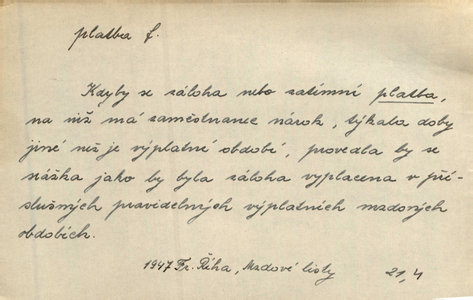 platba f.
Kdyby se záloha nebo zatímní platba,
na niž má zaměstnanec nárok, týkala doby
jiné než je výplatní období, provedla by se
srážka jako by byla záloha vyplacena v pří-
slušných pravidelných výplatních mzdových
obdobích.
1947 Fr. Říha, Mzdové listy 21,4